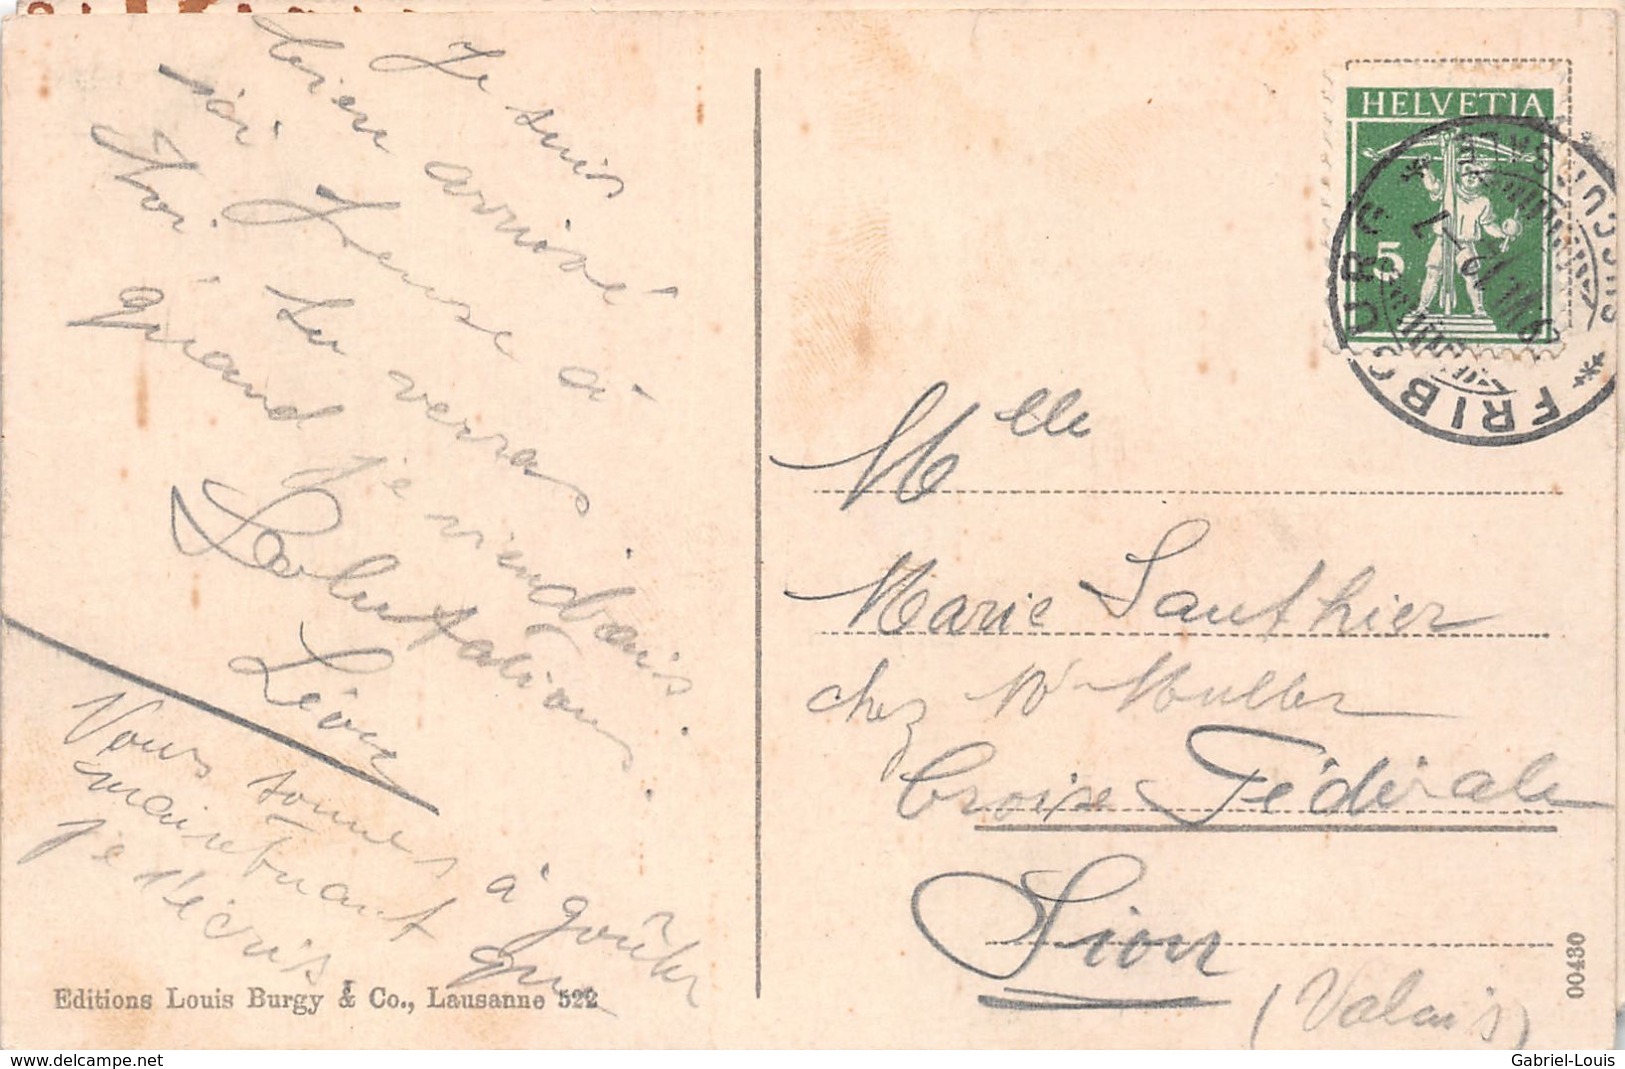 Je suis
bien arrivé
ici. Heure à
Tu verras
quand je viendrais.
Salutations.
Léon
Vous sommes à goûter
maintenant que
je t'écris.
Editions Louis Burgy & Co., Lausanne 522
HELVETIA
5
FRIBOURG
Mlle
Marie Gauthier
chez Mr Muller
Croixe Fédérale
Sion
(Valais)
00480
www.delcampe.net
Gabriel-Louis